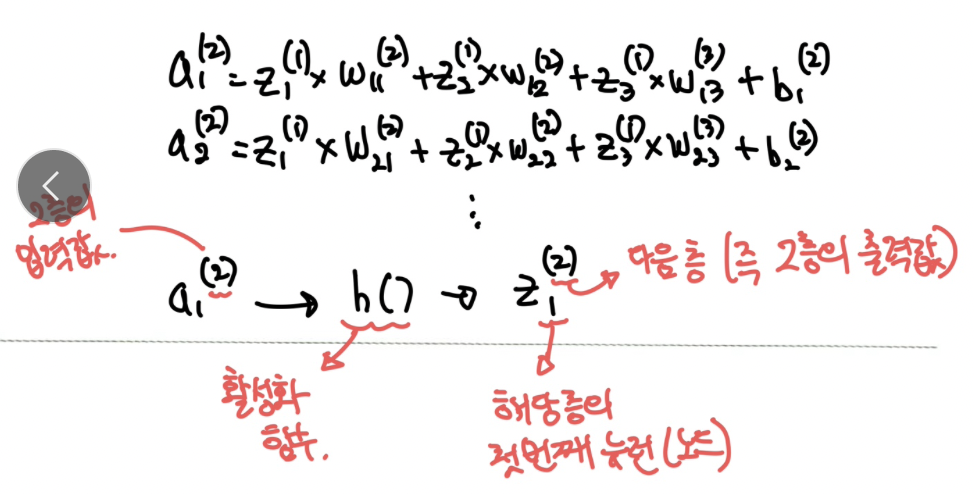 a₁⁽²⁾ = z₁⁽¹⁾ × w₁₁⁽²⁾ + z₂⁽¹⁾ × w₁₂⁽²⁾ + z₃⁽¹⁾ × w₁₃⁽³⁾ + b₁⁽²⁾
a₂⁽²⁾ = z₁⁽¹⁾ × w₂₁⁽²⁾ + z₂⁽¹⁾ × w₂₂⁽²⁾ + z₃⁽¹⁾ × w₂₃⁽³⁾ + b₂⁽²⁾
⋮
2층의
입력값.
다음 층 (즉 2층의 출력값)
a₁⁽²⁾ → h() → z₁⁽²⁾
활성화
함수.
해당층의
첫번째 뉴런(노드)